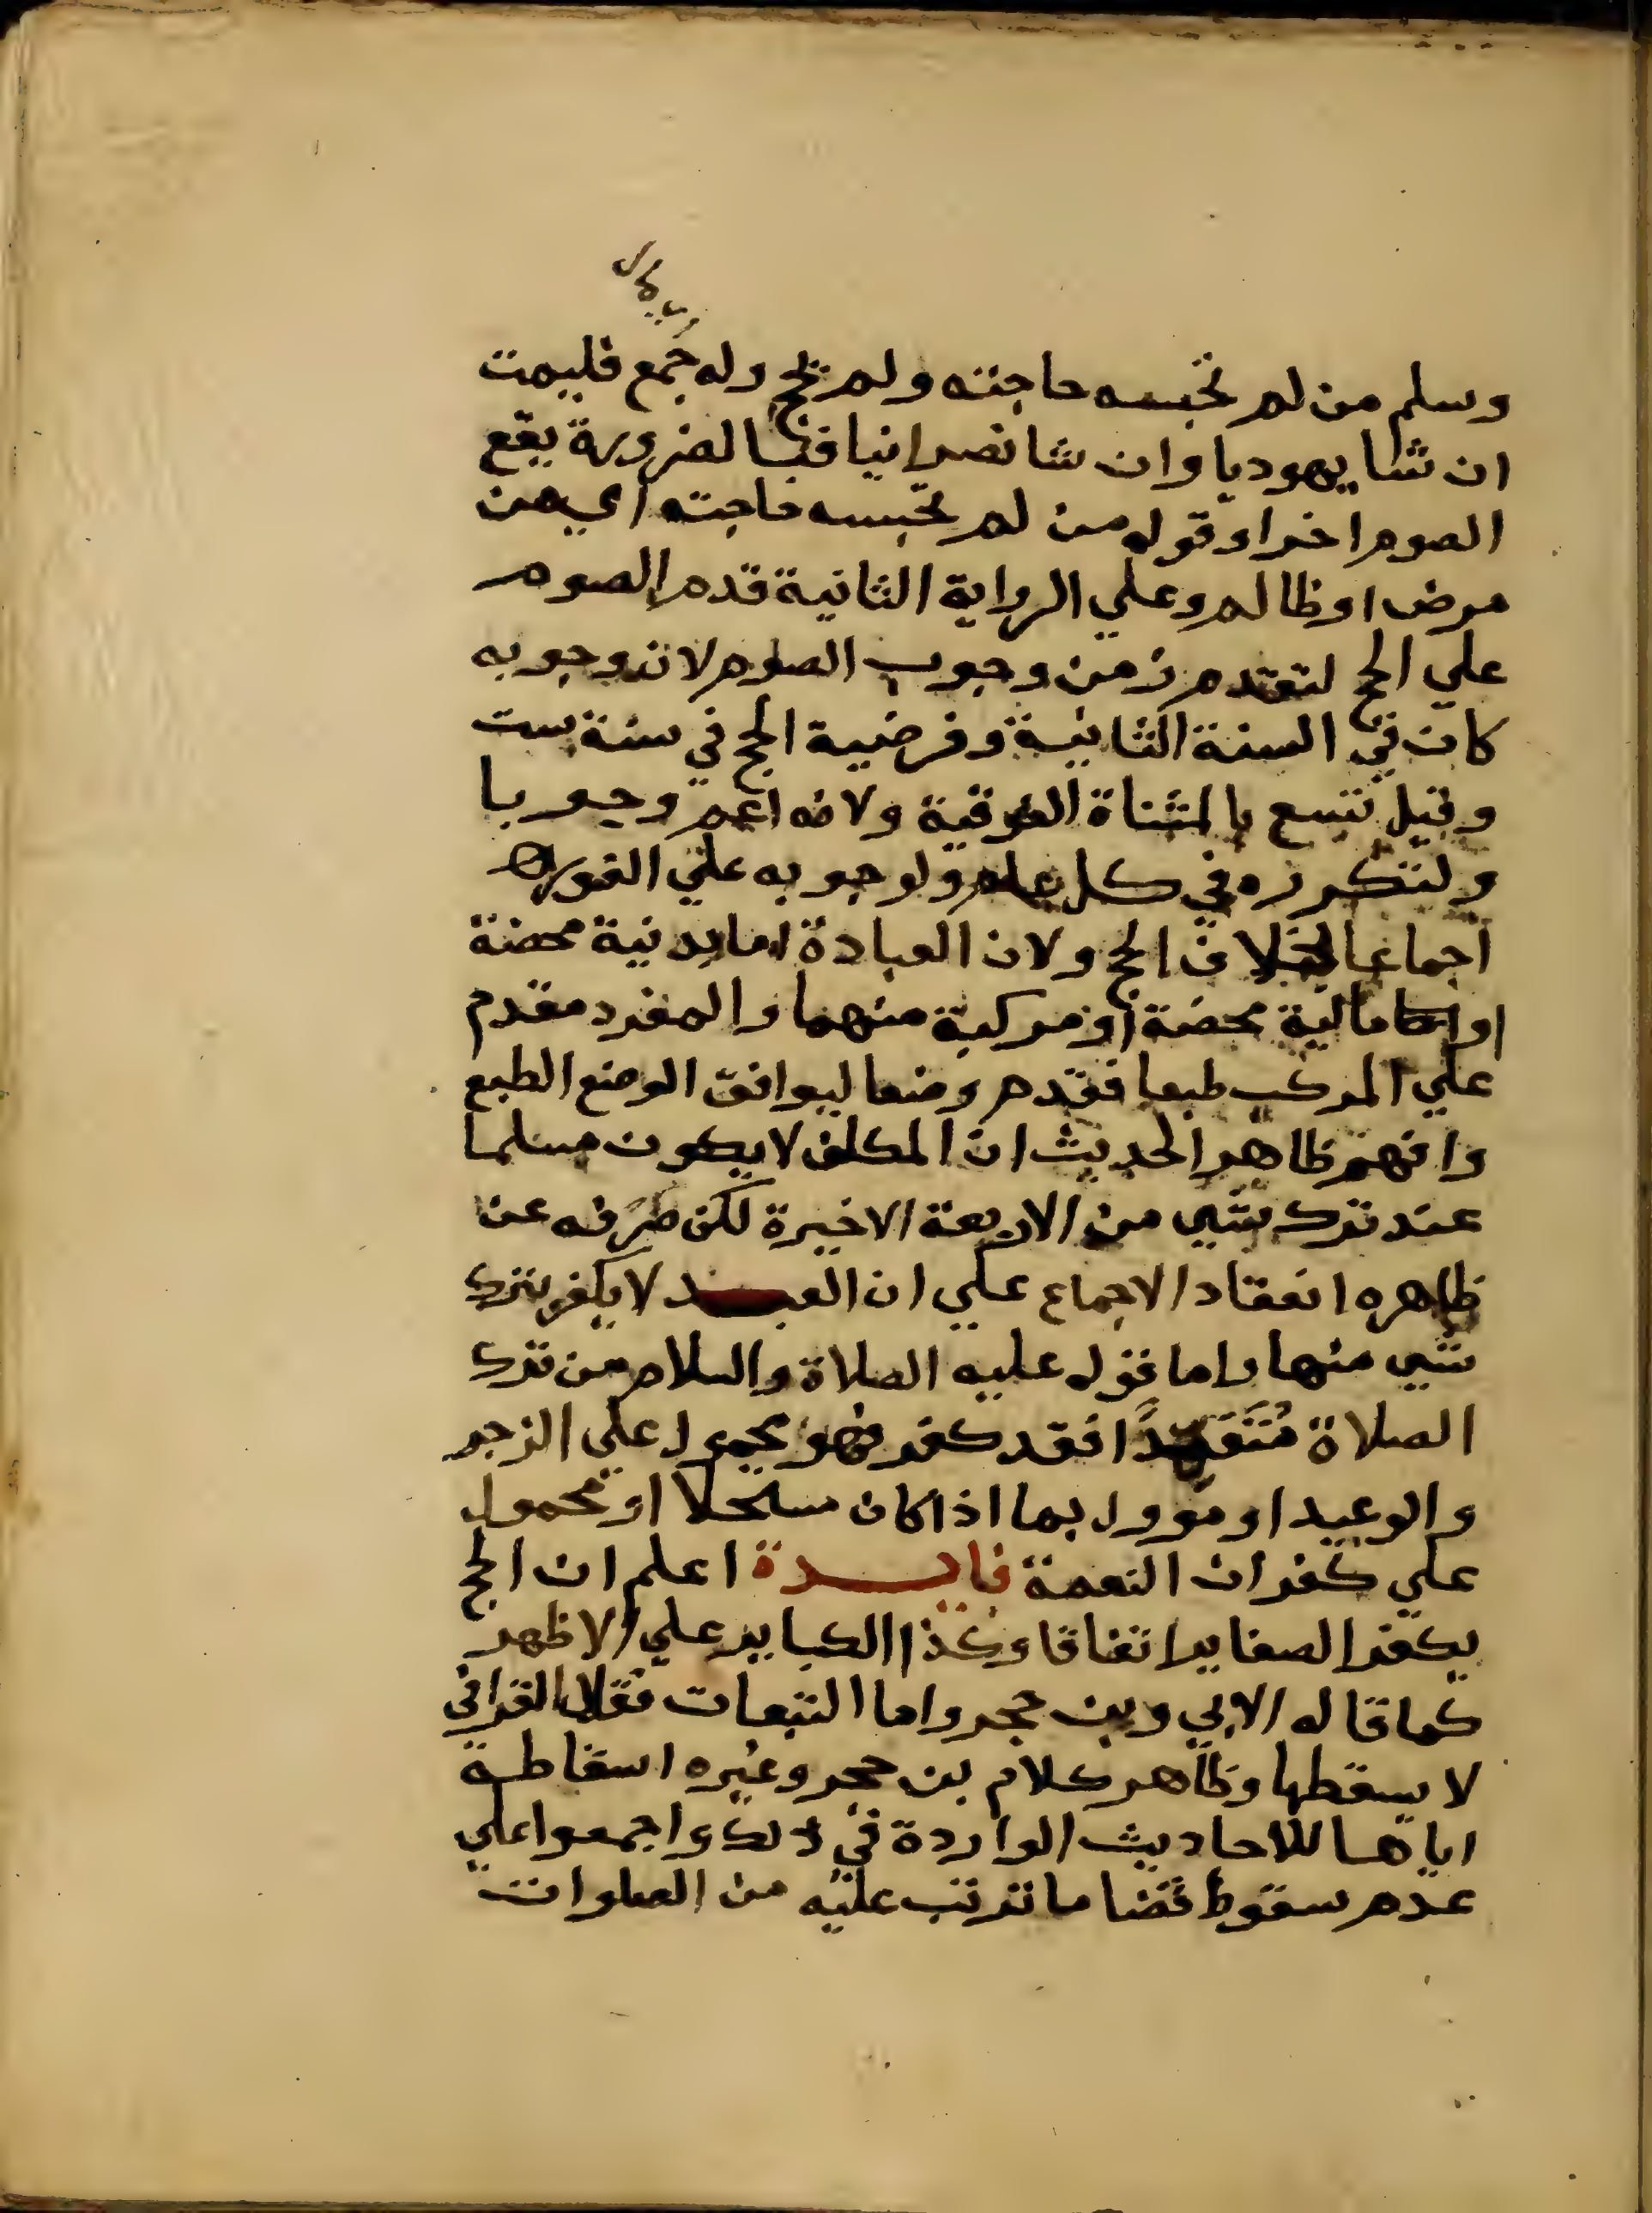 وسلم من لم تحبسه حاجته ولم يحج وله جمع فليمت
ان شا يهوديا وان شا نصرانيا فبالضرورة يقع
الصوم اخرا وقوله من لم تحبسه حاجته اي من
مرض او ظالم وعلي الرواية الثانية قدم الصوم
علي الحج لتقدم زمن وجوب الصوم لان وجوبه
كان في السنة الثانية وفرضية الحج في سنة ست
وقيل تسع بالمثناة الفوقية ولانه اعم وجوبا
ولتكرره في كل عام ولوجوبه علي الفور
اجماعا بخلاف الحج ولان العبادة اما بدنية محضة
او مالية محضة او مركبة منهما والمفرد مقدم
علي المركب طبعا فقدم وضعا ليوافق الوضع الطبع
وافهم ظاهر الحديث ان المكلف لا يكون مسلما
عند ترك شي من الاربعة الاخيرة لكن صرفه عن
ظاهره انعقاد الاجماع علي ان العبد لا يكفر بترك
شي منها واما قوله عليه الصلاة والسلام من ترك
الصلاة مُتَعَمِّدًا فقد كفر فهو محمول علي الزجر
والوعيد او مؤول بما اذا كان مستحلا او محمول
علي كفران النعمة فايدة اعلم ان الحج
يكفر الصغاير اتفاقا وكذا الكباير علي الاظهر
كما قاله الابي وبن حجر واما التبعات فقال القرافي
لا يسقطها وظاهر كلام بن حجر وغيره اسقاطه
اياها للاحاديث الواردة في ذلك واجمعوا علي
عدم سقوط قضا ما ترتب عليه من الصلوات